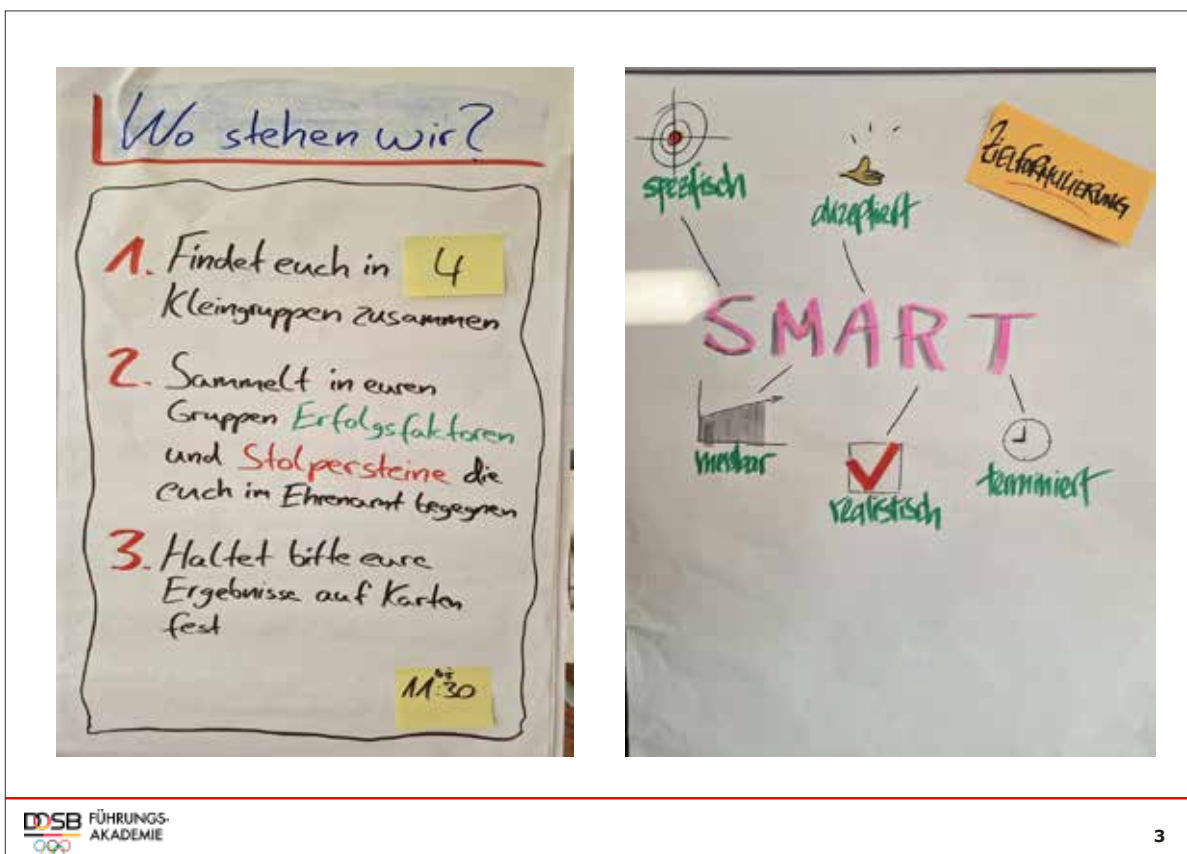 Wo stehen wir?
1. Findet euch in 4
Kleingruppen zusammen
2. Sammelt in euren
Gruppen Erfolgsfaktoren
und Stolpersteine die
euch im Ehrenamt begegnen
3. Haltet bitte eure
Ergebnisse auf Karten
fest
bis
11:30
ZIELFORMULIERUNG
spezifisch
akzeptiert
SMART
messbar
realistisch
terminiert
DOSB FÜHRUNGS-
AKADEMIE
3